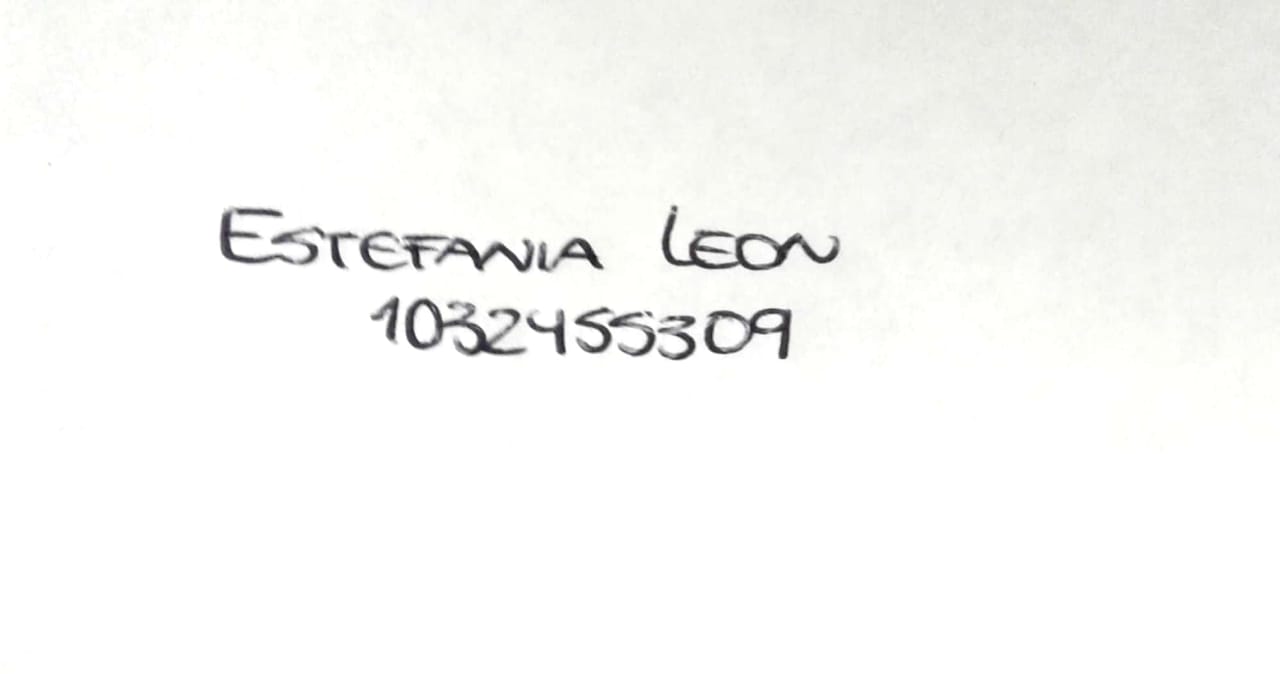 ESTEFANIA LEON
1032455309